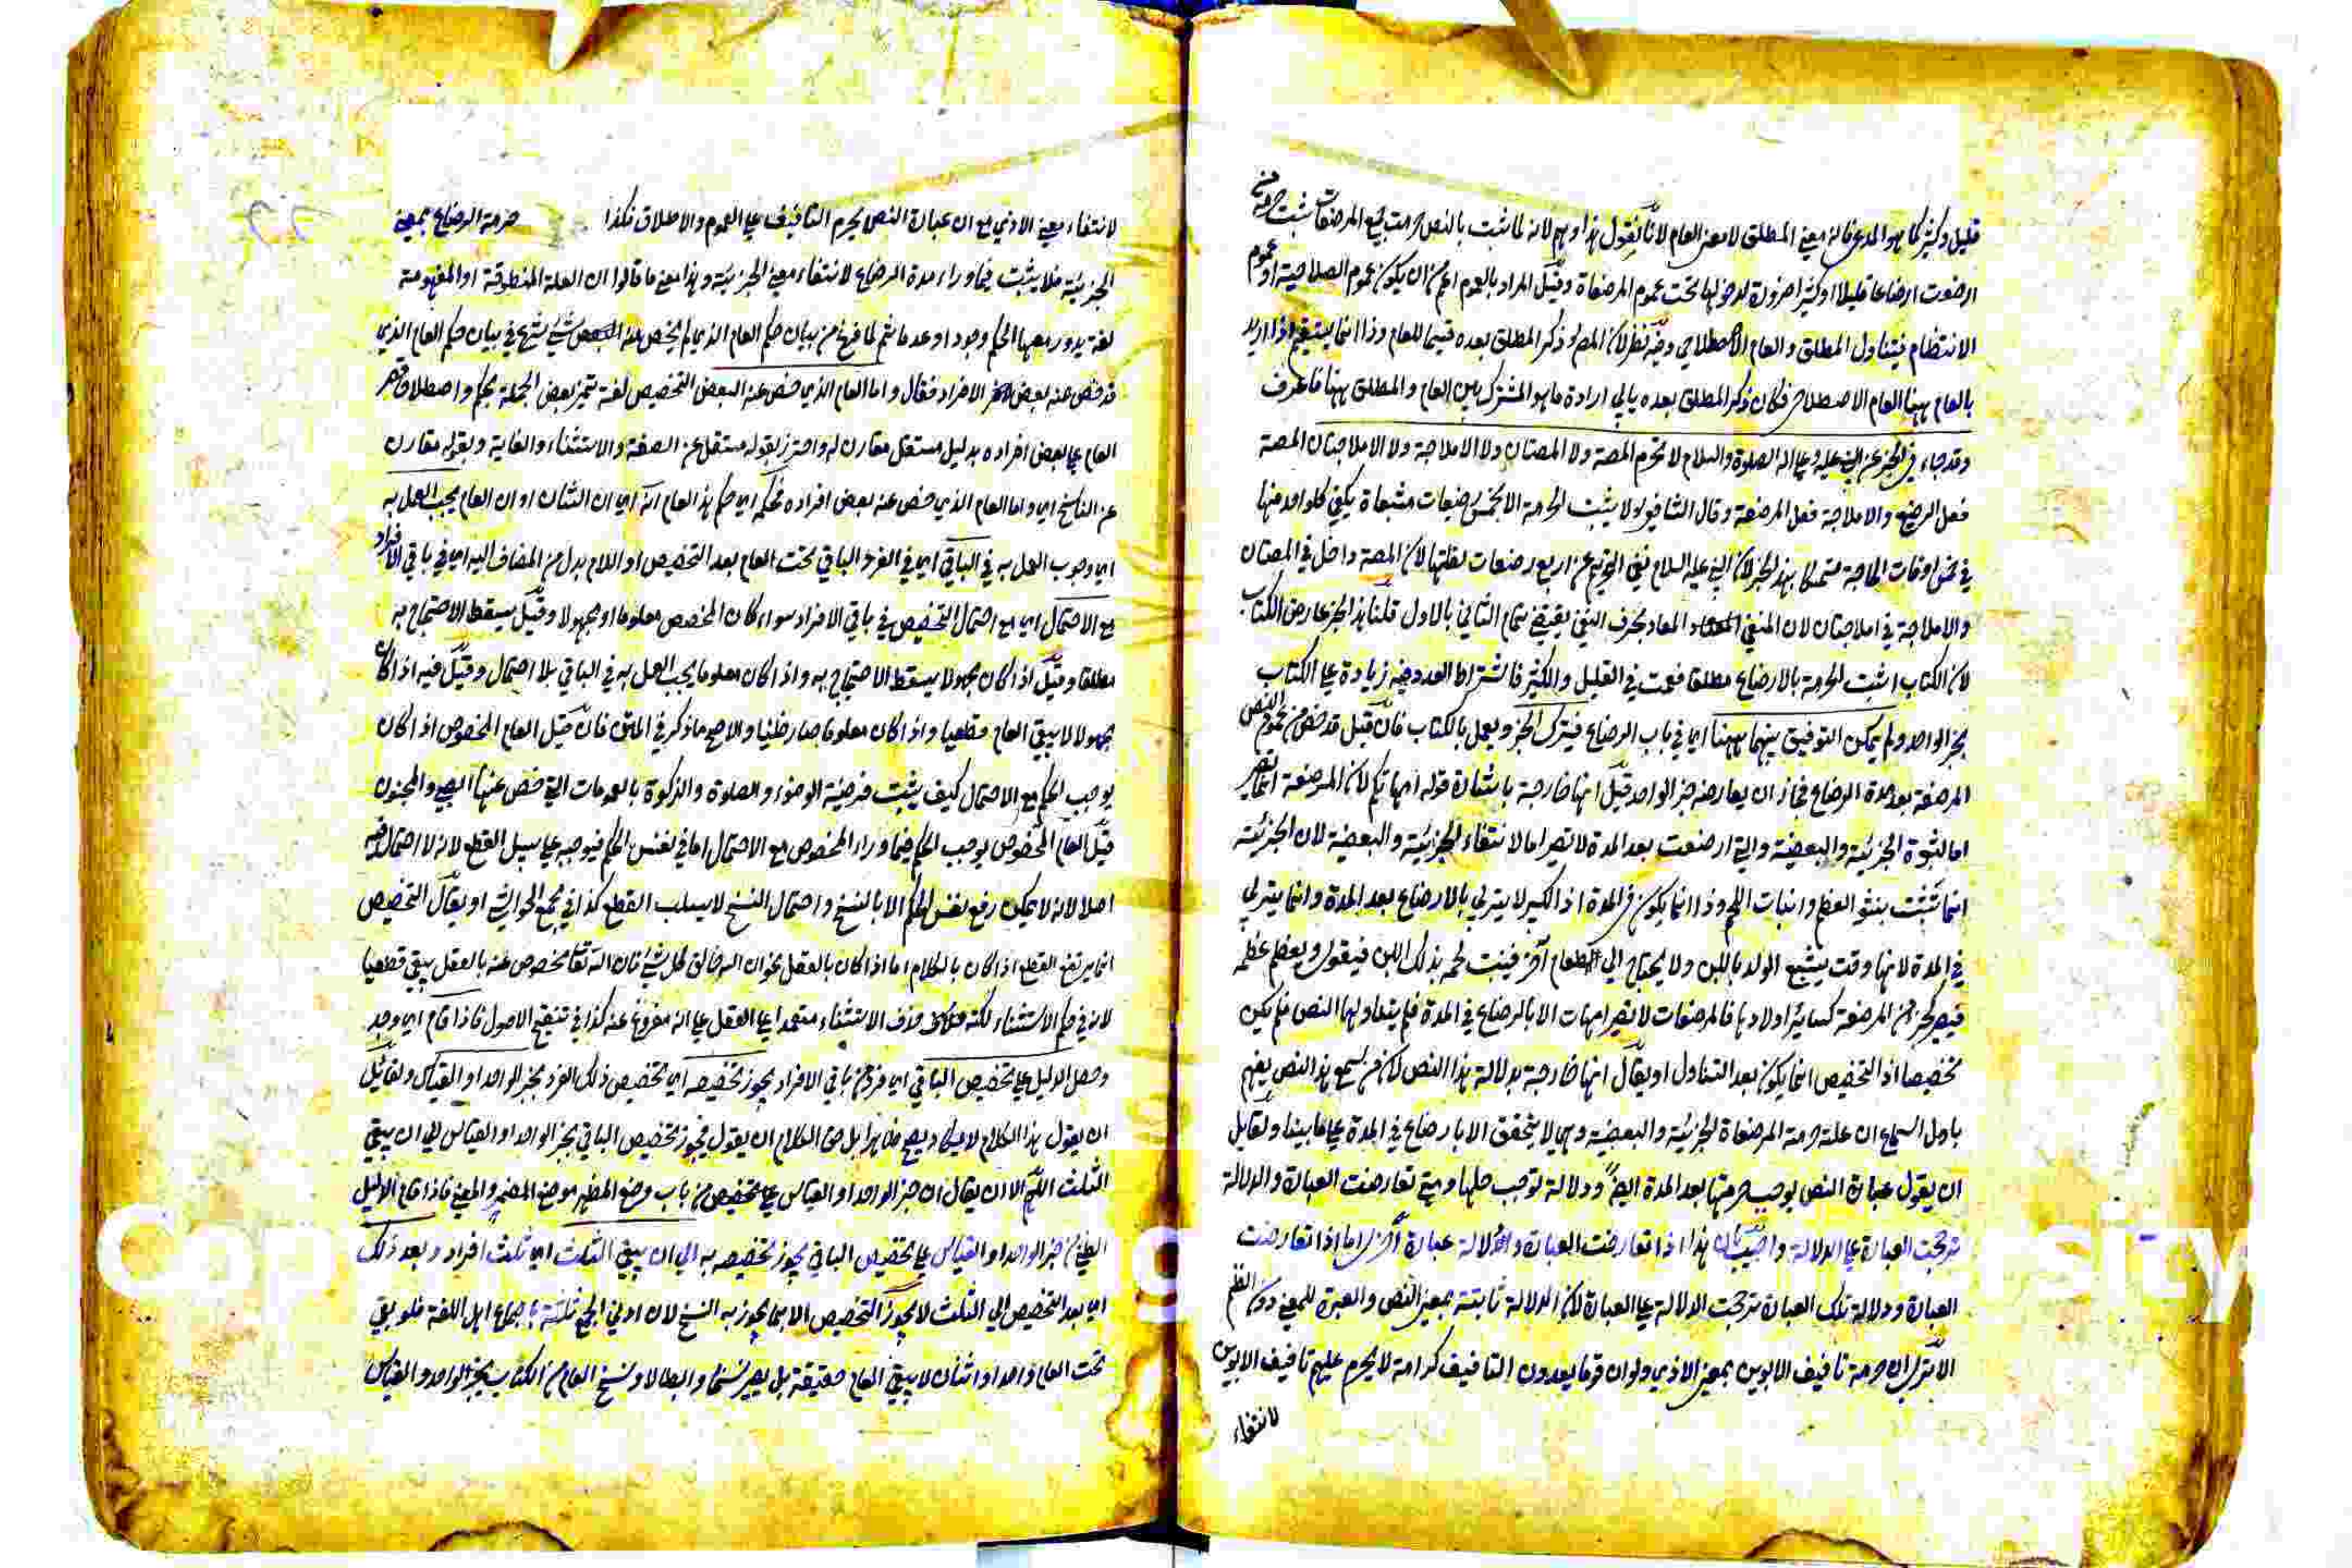 قليل وكثير كما هو المدعى فانه معنى المطلق لا معنى العام لانا نقول هذا وهم لانه لما ثبت بالنص حرمت جميع المرضعات ثبت حرمة من
ارضعت ارضاعا قليلا او كثيرا ضرورة لدخولها تحت عموم المرضعات وقيل المراد بالعموم اعم من ان يكون عموم الصلاحية او عموم
الانتظام فيتناول المطلق والعام الاصطلاحي وفيه نظر لان المص ذكر المطلق بعده قسيما للعام وذا انما يستقيم اذا اريد
بالعام ههنا العام الاصطلاحي فكان ذكر المطلق بعده يابي ارادة ما هو المشترك بين العام والمطلق ههنا فاعرف
وقد جاء في الخبر عن النبي عليه وعلى اله الصلوة والسلام لا تحرم المصة ولا المصتان ولا الاملاجة ولا الاملاجتان المصة
فعل الرضيع والاملاجة فعل المرضعة وقال الشافعي لا يثبت الحرمة الا بخمس رضعات مشبعات يكتفي كل واحد منها
في خمس اوقات الحاجة متمسكا بهذا الخبر لان النبي عليه السلام نفى التحريم عن اربع رضعات لقلتها لان المصة داخل في المصتان
والاملاجة في املاجتان لان المنفي المعاد بحرف النفي يقتضي تمام الثاني بالاول قلنا هذا الخبر عارض الكتاب
لان الكتاب اثبت الحرمة بالارضاع مطلقا فعمت في القليل والكثير فاشتراط العدد فيه زيادة على الكتاب
بخبر الواحد ولم يمكن التوفيق بينهما ههنا اي في باب الرضاع فيترك الخبر ويعمل بالكتاب فان قيل قد خص من عموم النص
المرضعة بعد مدة الرضاع فجاز ان يعارضه خبر الواحد قيل انها خارجة باشارة قوله امهاتكم لان المرضعة انما تصير
اما لثبوة الجزئية والبعضية والتي ارضعت بعد المدة لا تصير اما لانتفاء الجزئية والبعضية لان الجزئية
انما تثبت بنشو العظم وانبات اللحم وذا انما يكون في المدة اذ الكبير لا يتربي بالارضاع بعد المدة وانما يتربي
في المدة لانها وقت يشبع الولد باللبن ولا يحتاج الى الطعام آخر فينبت لحمه بذلك اللبن فيقوى ويعظم عظمه
فيصير كجزء من المرضعة كسائر اولادها فالمرضعات لا تصير امهات الا بالرضاع في المدة فلم يتناولها النص فلم يكن
تخصيصا اذ التخصيص انما يكون بعد التناول او يقال انها خارجة بدلالة هذا النص لان من يسمع هذا النص يفهم
باول السماع ان علة حرمة المرضعات الجزئية والبعضية وهي لا يتحقق الا بارضاع في المدة على ما بينا ولقايل
ان يقول عبارة النص يوجب حرمتها بعد المدة ايضا ودلالة توجب حلها ومتى تعارضت العبارة والدلالة
ترجحت العبارة على الدلالة واجيب بان هذا اذا تعارضت العبارة والدلالة عبارة اخرى اما اذا تعارضت
العبارة ودلالة تلك العبارة ترجحت الدلالة على العبارة لان الدلالة ثابتة بمعنى النص والعبرة للمعنى دون النظم
الا ترى ان حرمة تافيف الابوين بمعنى الاذي ولو ان قوما يعدون التافيف كرامة لا يحرم عليهم تافيف الابوين
لانتفاء
لانتفاء معنى الاذي مع ان عبارة النص يحرم التافيف على العموم والاطلاق فكذا حرمة الرضاع بمعنى
الجزئية فلا يثبت فيما وراء مدة الرضاع لانتفاء معنى الجزئية وهذا معنى ما قالوا ان العلة المنطوقة او المفهومة
لغة يدور معها الحكم وجودا وعدما ثم لما فرغ من بيان حكم العام الذي لم يخص منه شيء شرع في بيان حكم العام الذي
قد خص منه بعض الافراد فقال واما العام الذي خص عنه البعض التخصيص لغة تمييز بعض الجملة بحكم واصطلاحا قصر
العام على بعض افراده بدليل مستقل مقارن له واحترز بقوله مستقل عن الصفة والاستثناء والغاية وبقوله مقارن
عن الناسخ اي واما العام الذي خص عنه بعض افراده فحكمه اي حكم هذا العام انه اي ان الشان او ان العام يجب العمل به
اي وجوب العمل به في الباقي اي في الفرد الباقي تحت العام بعد التخصيص او اللام بدل من المضاف اليه اي في باقي الافراد
مع الاحتمال اي مع احتمال التخصيص في باقي الافراد سواء كان المخصص معلوما او مجهولا وقيل يسقط الاحتجاج به
مطلقا وقيل اذا كان مجهولا يسقط الاحتجاج به واذا كان معلوما يجب العمل به في الباقي بلا احتمال وقيل فيه اذا كان
مجهولا لا يبقى العام قطعيا واذا كان معلوما صار ظنيا والاصح ما ذكر في المتن فان قيل العام المخصوص اذا كان
يوجب الحكم مع الاحتمال كيف يثبت فرضية الوضوء والصلوة والزكوة بالعمومات التي خص عنها الصبي والمجنون
قيل العام المخصوص يوجب الحكم فيما وراء المخصوص مع الاحتمال اما في نفس الحكم فيوجبه على سبيل القطع لانه لا احتمال فيه
اصلا لانه لا يمكن رفع نفس الحكم الا بالنسخ واحتمال النسخ لا يسلب القطع كذا في مجمع الحواشي او يقال التخصيص
انما يرتفع القطع اذا كان بالكلام اما اذا كان بالعقل نحو ان الله خالق كل شيء فان الله تعالى مخصوص عنه بالعقل يبقى قطعيا
لانه في حكم الاستثناء لكنه حذف الاستثناء معتمدا على العقل على انه مفروغ عنه كذا في تنقيح الاصول فاذا قام اي وجد
وحصل الدليل على تخصيص الباقي اي فرد من باقي الافراد يجوز تخصيصه اي تخصيص ذلك الفرد بخبر الواحد او القياس ولقائل
ان يقول هذا الكلام لا يكاد يصح ظاهرا بل حق الكلام ان يقول فيجوز تخصيص الباقي بخبر الواحد او القياس الى ان يبقى
الثلث اللهم الا ان يقال ان خبر الواحد او القياس على تخصيص من باب وضع المظهر موضع المضمر والمعنى فاذا قام الدليل
الظني من خبر الواحد او القياس على تخصيص الباقي يجوز تخصيصه به الى ان يبقى الثلث اي ثلث افراد وبعد ذلك
اي بعد التخصيص الى الثلث لا يجوز التخصيص الا بما يجوز به النسخ لان ادنى الجمع ثلثة باجماع اهل اللغة فلو بقي
تحت العام واحد او اثنان لا يبقى العام حقيقة بل يصير نسخا وابطالا ونسخ العام من الكتاب بخبر الواحد والقياس